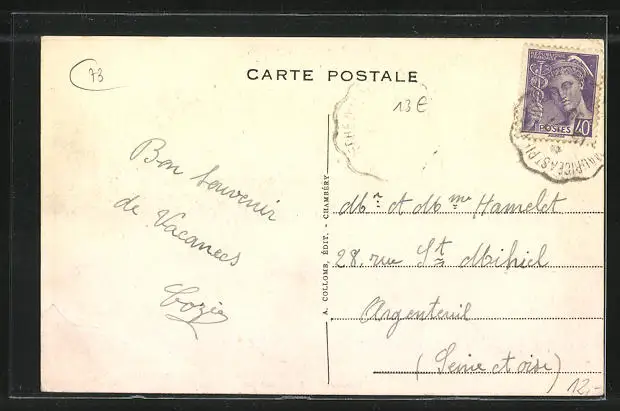 73
CARTE POSTALE
13€
POSTES 40
Bon Souvenir
de Vacances
A. COLLOMB, ÉDIT. - CHAMBÉRY
Mr et Mme Hamelet
28, rue St Mihiel
Argenteuil
(Seine et oise)
12,-